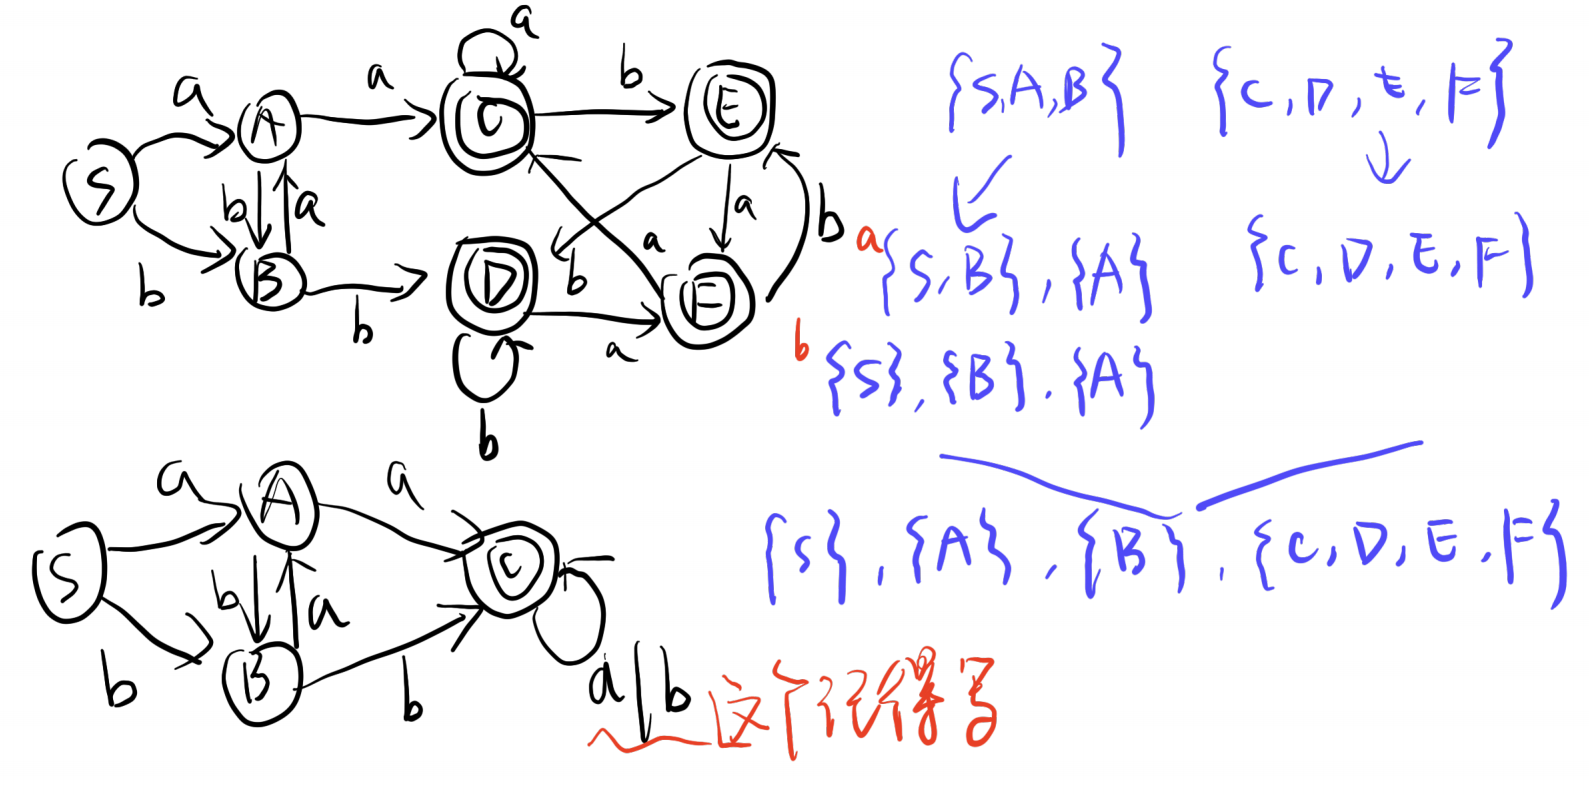 a
a
a
b
S
A
C
E
b
a
a
b
B
b
D
b
a
a
F
b
a
b
{S,A,B} {C,D,E,F}
a {S,B},{A} {C,D,E,F}
b {S},{B}.{A}
{S},{A},{B},{C,D,E,F}
a
A
a
S
C
b
a
b
B
b
a|b 这个记得写